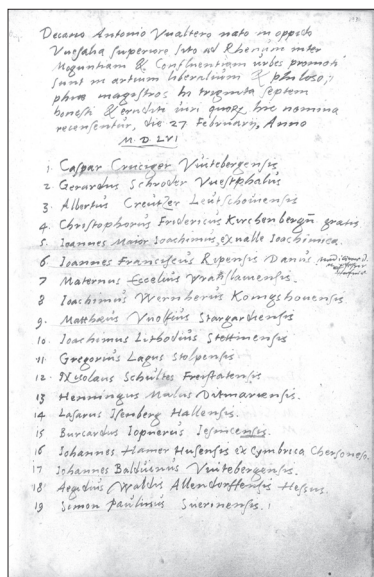 Decano Antonio Vualtero nato in oppido
Vuesalia superiore sito ad Rhenum inter
Moguntiam & Confluentiam urbes promoti
sunt in artium liberalium & philoso-
phiae magistros hi triginta septem
honesti & eruditi viri quorum hic nomina
recensentur, die 27 Februarij, Anno
M D LVI
1. Caspar Cruciger Vuitebergensis
2. Gerardus Schroder Vuestphalus
3. Albertus Creutzer Leutschouiensis
4. Christophorus Fridericus Kirchenbergen. gratis
5. Ioannes Maior Ioachimus, ex ualle Ioachimica.
6. Ioannes Franciscus Ripensis Danus
7 Maternus Eccelius Vratislauiensis
8 Ioachimus Wernherus Konigshouensis
9. Matthaeus Vuolfius Stargardiensis
10. Ioachimus Lithodius Stettinensis
11 Gregorius Lagus Stolpensis
12. Nicolaus Schultes Freistatensis
13 Henningus Malus Ditmariensis.
14 Lasarus Isenberg Hallensis.
15 Burcardus Iopnerus Iesnicensis.
16 Iohannes Hamer Husensis ex Cymbrica Chersoneso.
17 Iohannes Balduinus Vuitebergensis.
18 Aegidius Waldis Allendorffensis Hessus.
19 Simon Paulusius Suerinensis.